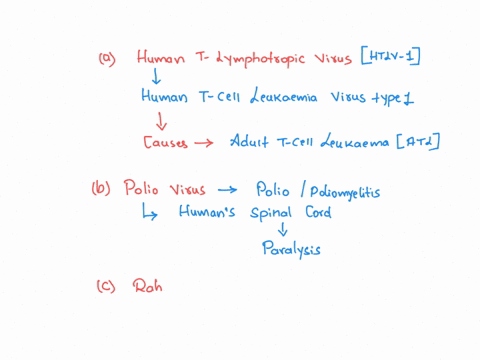 (a) Human T-Lymphotropic Virus [HTLV-1]
Human T-Cell Leukaemia Virus type 1
Causes → Adult T-Cell Leukaema [ATL]
(b) Polio Virus → Polio / Poliomyelitis
Human's Spinal Cord
Paralysis
(c) Rah